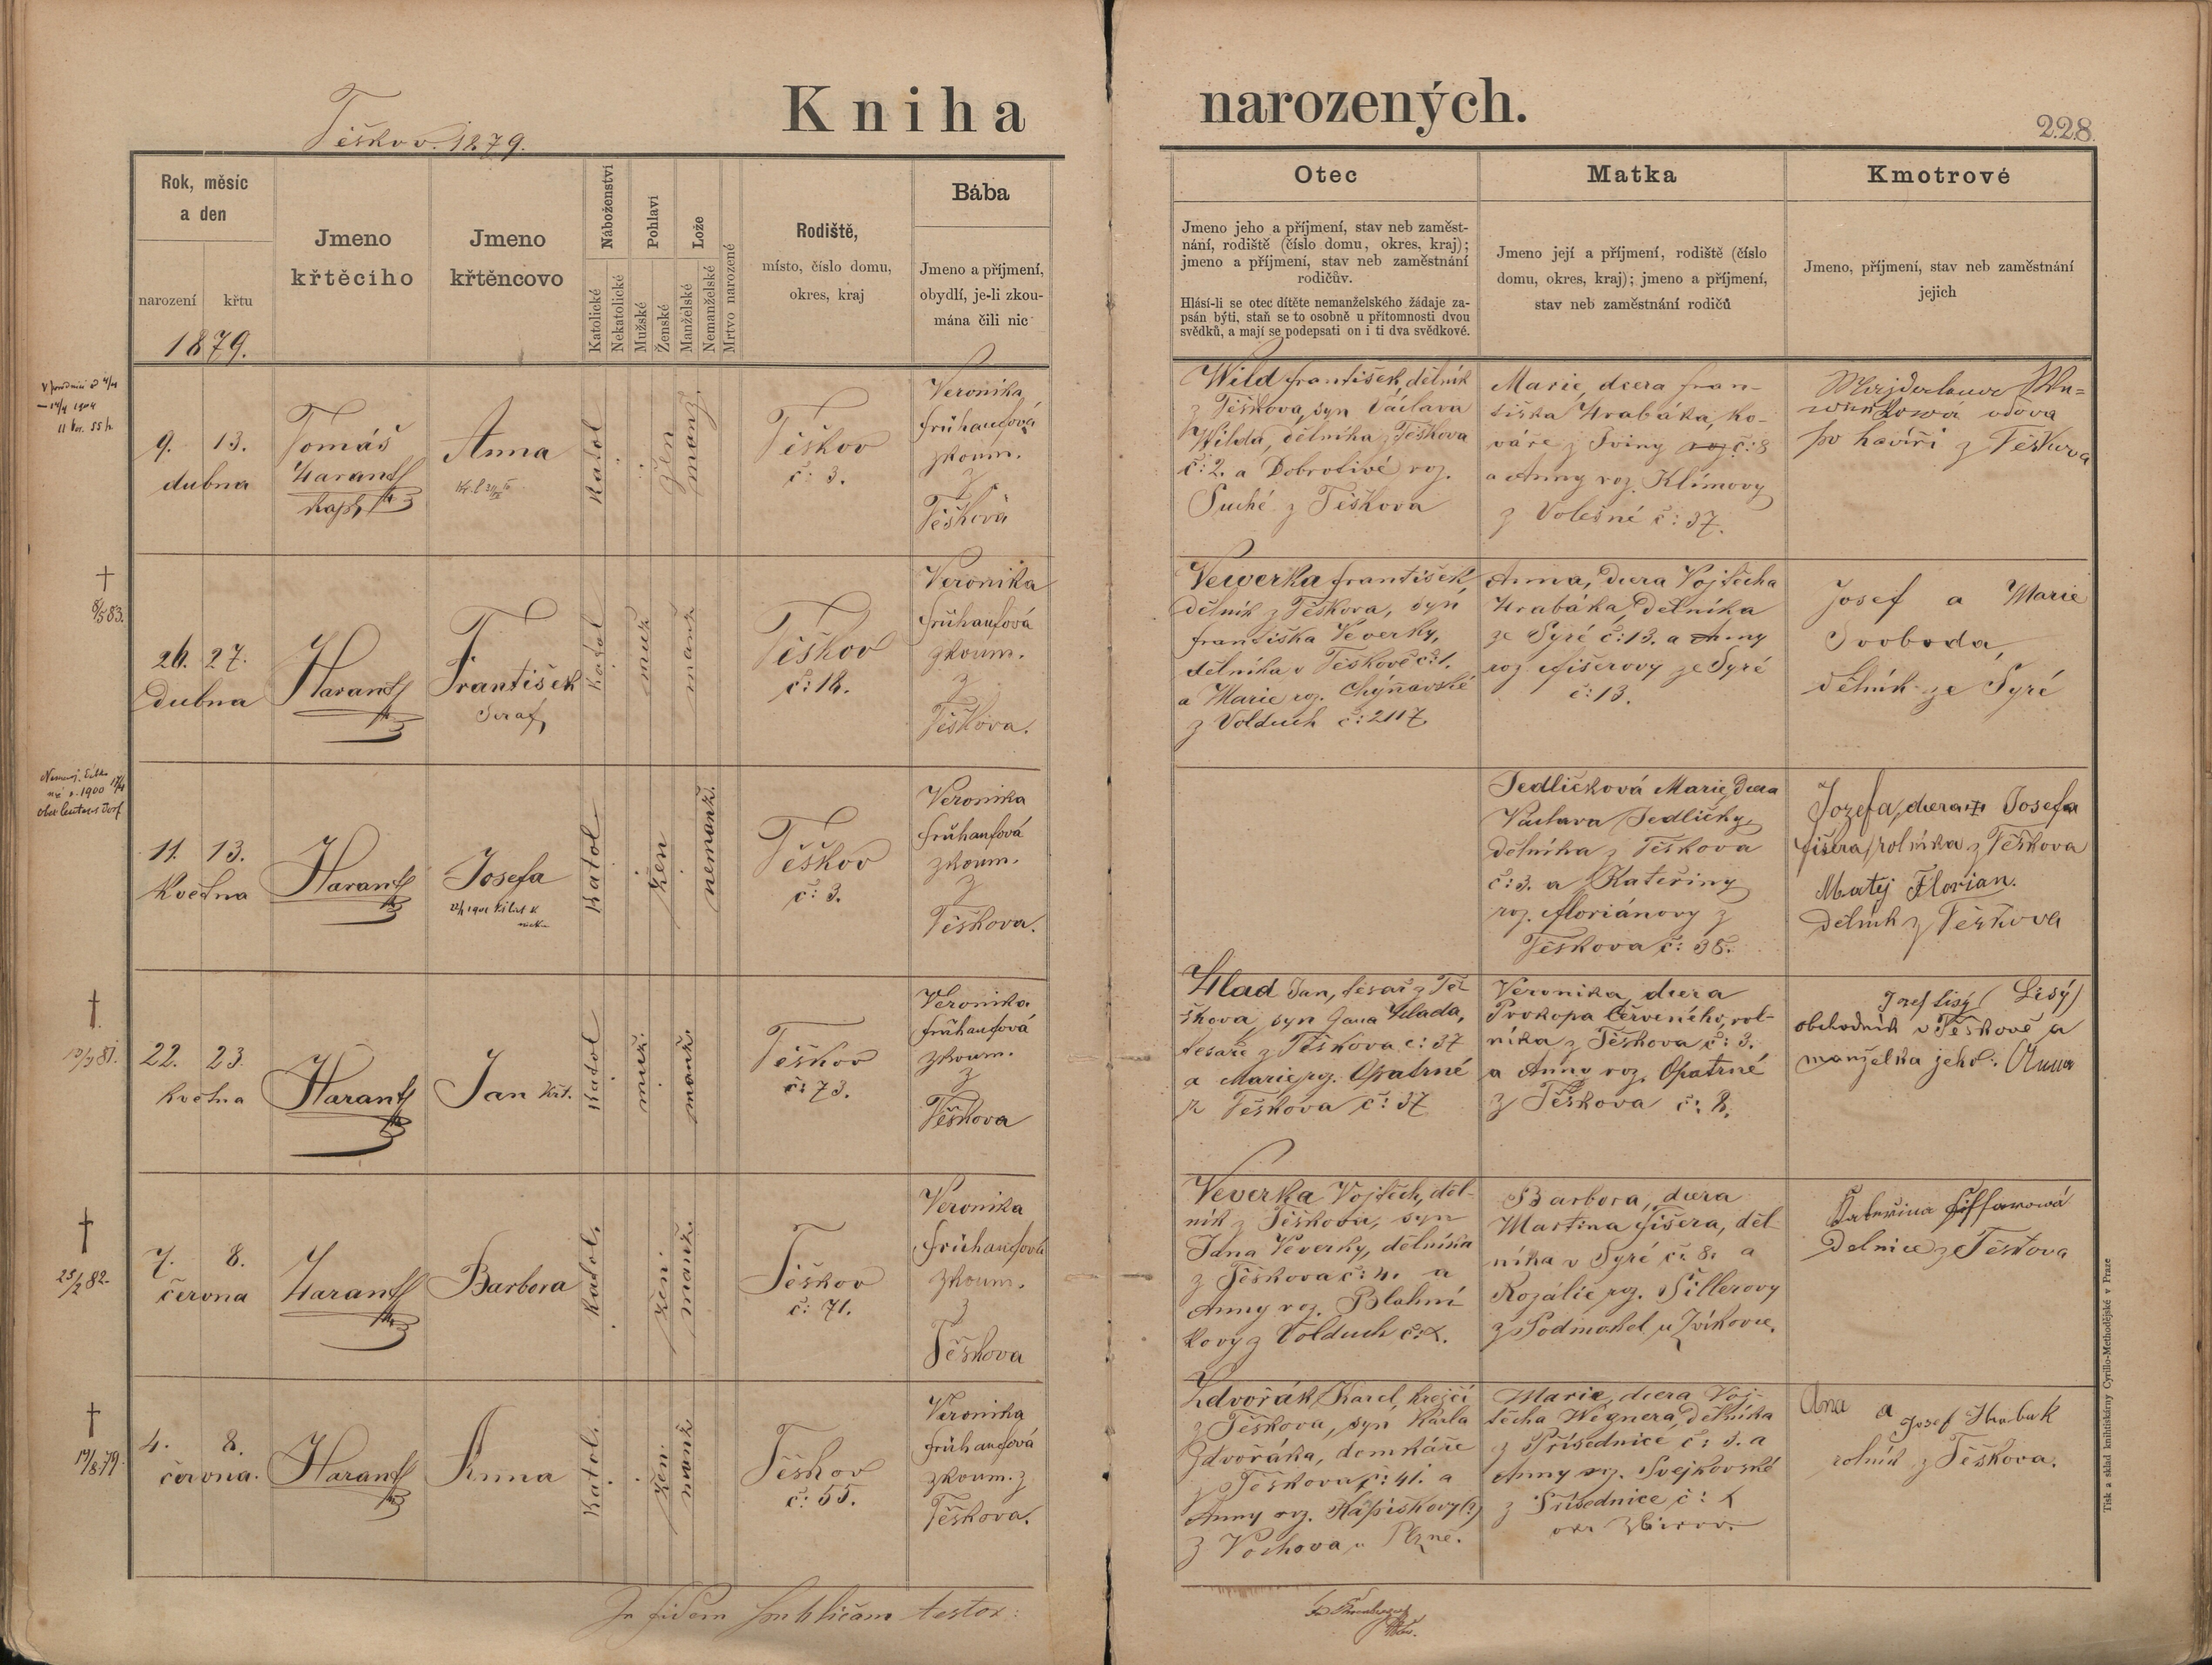 Kniha narozených.
Těškov. 1879.
228.
Rok, měsíc
a den
narození
křtu
1879.
Jmeno
křtěcího
Jmeno
křtěncovo
Náboženství
Katolické
Nekatolické
Pohlaví
Mužské
Ženské
Lože
Manželské
Nemanželské
Mrtvo narozené
Rodiště,
místo, číslo domu,
okres, kraj
Bába
Jmeno a příjmení,
obydlí, je-li zkou-
mána čili nic
Otec
Jmeno jeho a příjmení, stav neb zaměst-
nání, rodiště (číslo domu, okres, kraj);
jmeno a příjmení, stav neb zaměstnání
rodičův.
Hlásí-li se otec dítěte nemanželského žádaje za-
psán býti, staň se to osobně u přítomnosti dvou
svědků, a mají se podepsati on i ti dva svědkové.
Matka
Jmeno její a příjmení, rodiště (číslo
domu, okres, kraj); jmeno a příjmení,
stav neb zaměstnání rodičů
Kmotrové
Jmeno, příjmení, stav neb zaměstnání
jejich
9. 13.
dubna
Tomáš
Harant
kapl.
Anna
katol
žen
manž.
Těškov
č: 3.
Veronika
Frühaufová
zkoum.
z
Těškova
Wild František, dělník
z Těškova, syn Václava
Wilda, dělníka z Těškova
č: 2. a Dobrotivé roz.
Suché z Těškova
Marie, dcera Fran-
tiška Hrabáka, ko-
váře z Sviny č: 8
a Anny roz. Klímovy
z Volešné č: 37.
vdova
po havíři z Těškova
†
26. 27.
Dubna
Harant
František
Seraf.
katol
muž
manž
Těškov
č: 18.
Veronika
Frühaufová
zkoum.
z
Těškova.
Vewerka František
dělník z Těškova, syn
Františka Veverky,
dělníka v Těškově č: 1.
a Marie roz. Chýňavské
z Volduch č: 117
Anna, dcera Vojtěcha
Hrabáka, dělníka
ze Syré č: 13. a Anny
roz. Fišerovy ze Syré
č: 13.
Josef a Marie
Svoboda,
dělník ze Syré
11. 13.
Května
Harant
Josefa
katol
žen
nemanž.
Těškov
č: 3.
Veronika
Frühaufová
zkoum.
z
Těškova.
Jedličková Marie, dcera
Václava Jedličky,
dělníka z Těškova
č: 3. a Kateřiny
roz. Floriánovy z
Těškova č: 38.
Jozefa, dcera † Josefa
Fišera, rolníka z Těškova
Matěj Florian.
Dělník z Těškova
†
22. 23.
května
Harant
Jan Křt.
katol
muž.
manž.
Těškov
č: 73.
Veronika
Frühaufová
zkoum.
z
Těškova
Hlad Jan, tesař z Tě
škova, syn Jana Hlada,
tesaře z Těškova č: 37
a Marie roz. Opatrné
z Těškova č: 37
Veronika, dcera
Prokopa Červeného, rol-
níka z Těškova č: 3.
a Anny roz. Opatrné
z Těškova č: 8.
Josef Lisý (Lisý)
obchodník v Těškově a
manželka jeho: Anna
†
25/2 82.
7. 8.
června
Harant
Barbora
katol.
žen.
manž.
Těškov
č: 71.
Veronika
Frühaufová
zkoum.
z
Těškova
Veverka Vojtěch, děl-
ník z Těškova, syn
Jana Veverky, dělníka
z Těškova č: 4. a
Anny roz. Blahní
kovy z Volduch č:
Barbora, dcera
Martina Fišera, děl-
níka v Syré č: 8. a
Rozálie roz. Šillerovy
z Podmokel u Zvíkovce.
Kateřina
Dělnice z Těškova
†
19/8.79.
4. 8.
června.
Harant
Anna
katol.
žen.
manž
Těškov
č: 55.
Veronika
Frühaufová
zkoum. z
Těškova.
Zdvořák Karel, krejčí
z Těškova, syn Karla
Zdvořáka, domkáře
z Těškova č: 41. a
Anny roz. Kapiskovy (?)
z Vochova u Plzně.
Marie, dcera Voj-
těcha Wegnera, dělníka
z Přísednice č: 3. a
Anny roz. Švejkovské
z Přísednice č:
okr Zbirov.
Ana a Josef Hrabak
rolník z Těškova.
In fidem publicam testor:
Tisk a sklad knihtiskárny Cyrillo-Methodějské v Praze